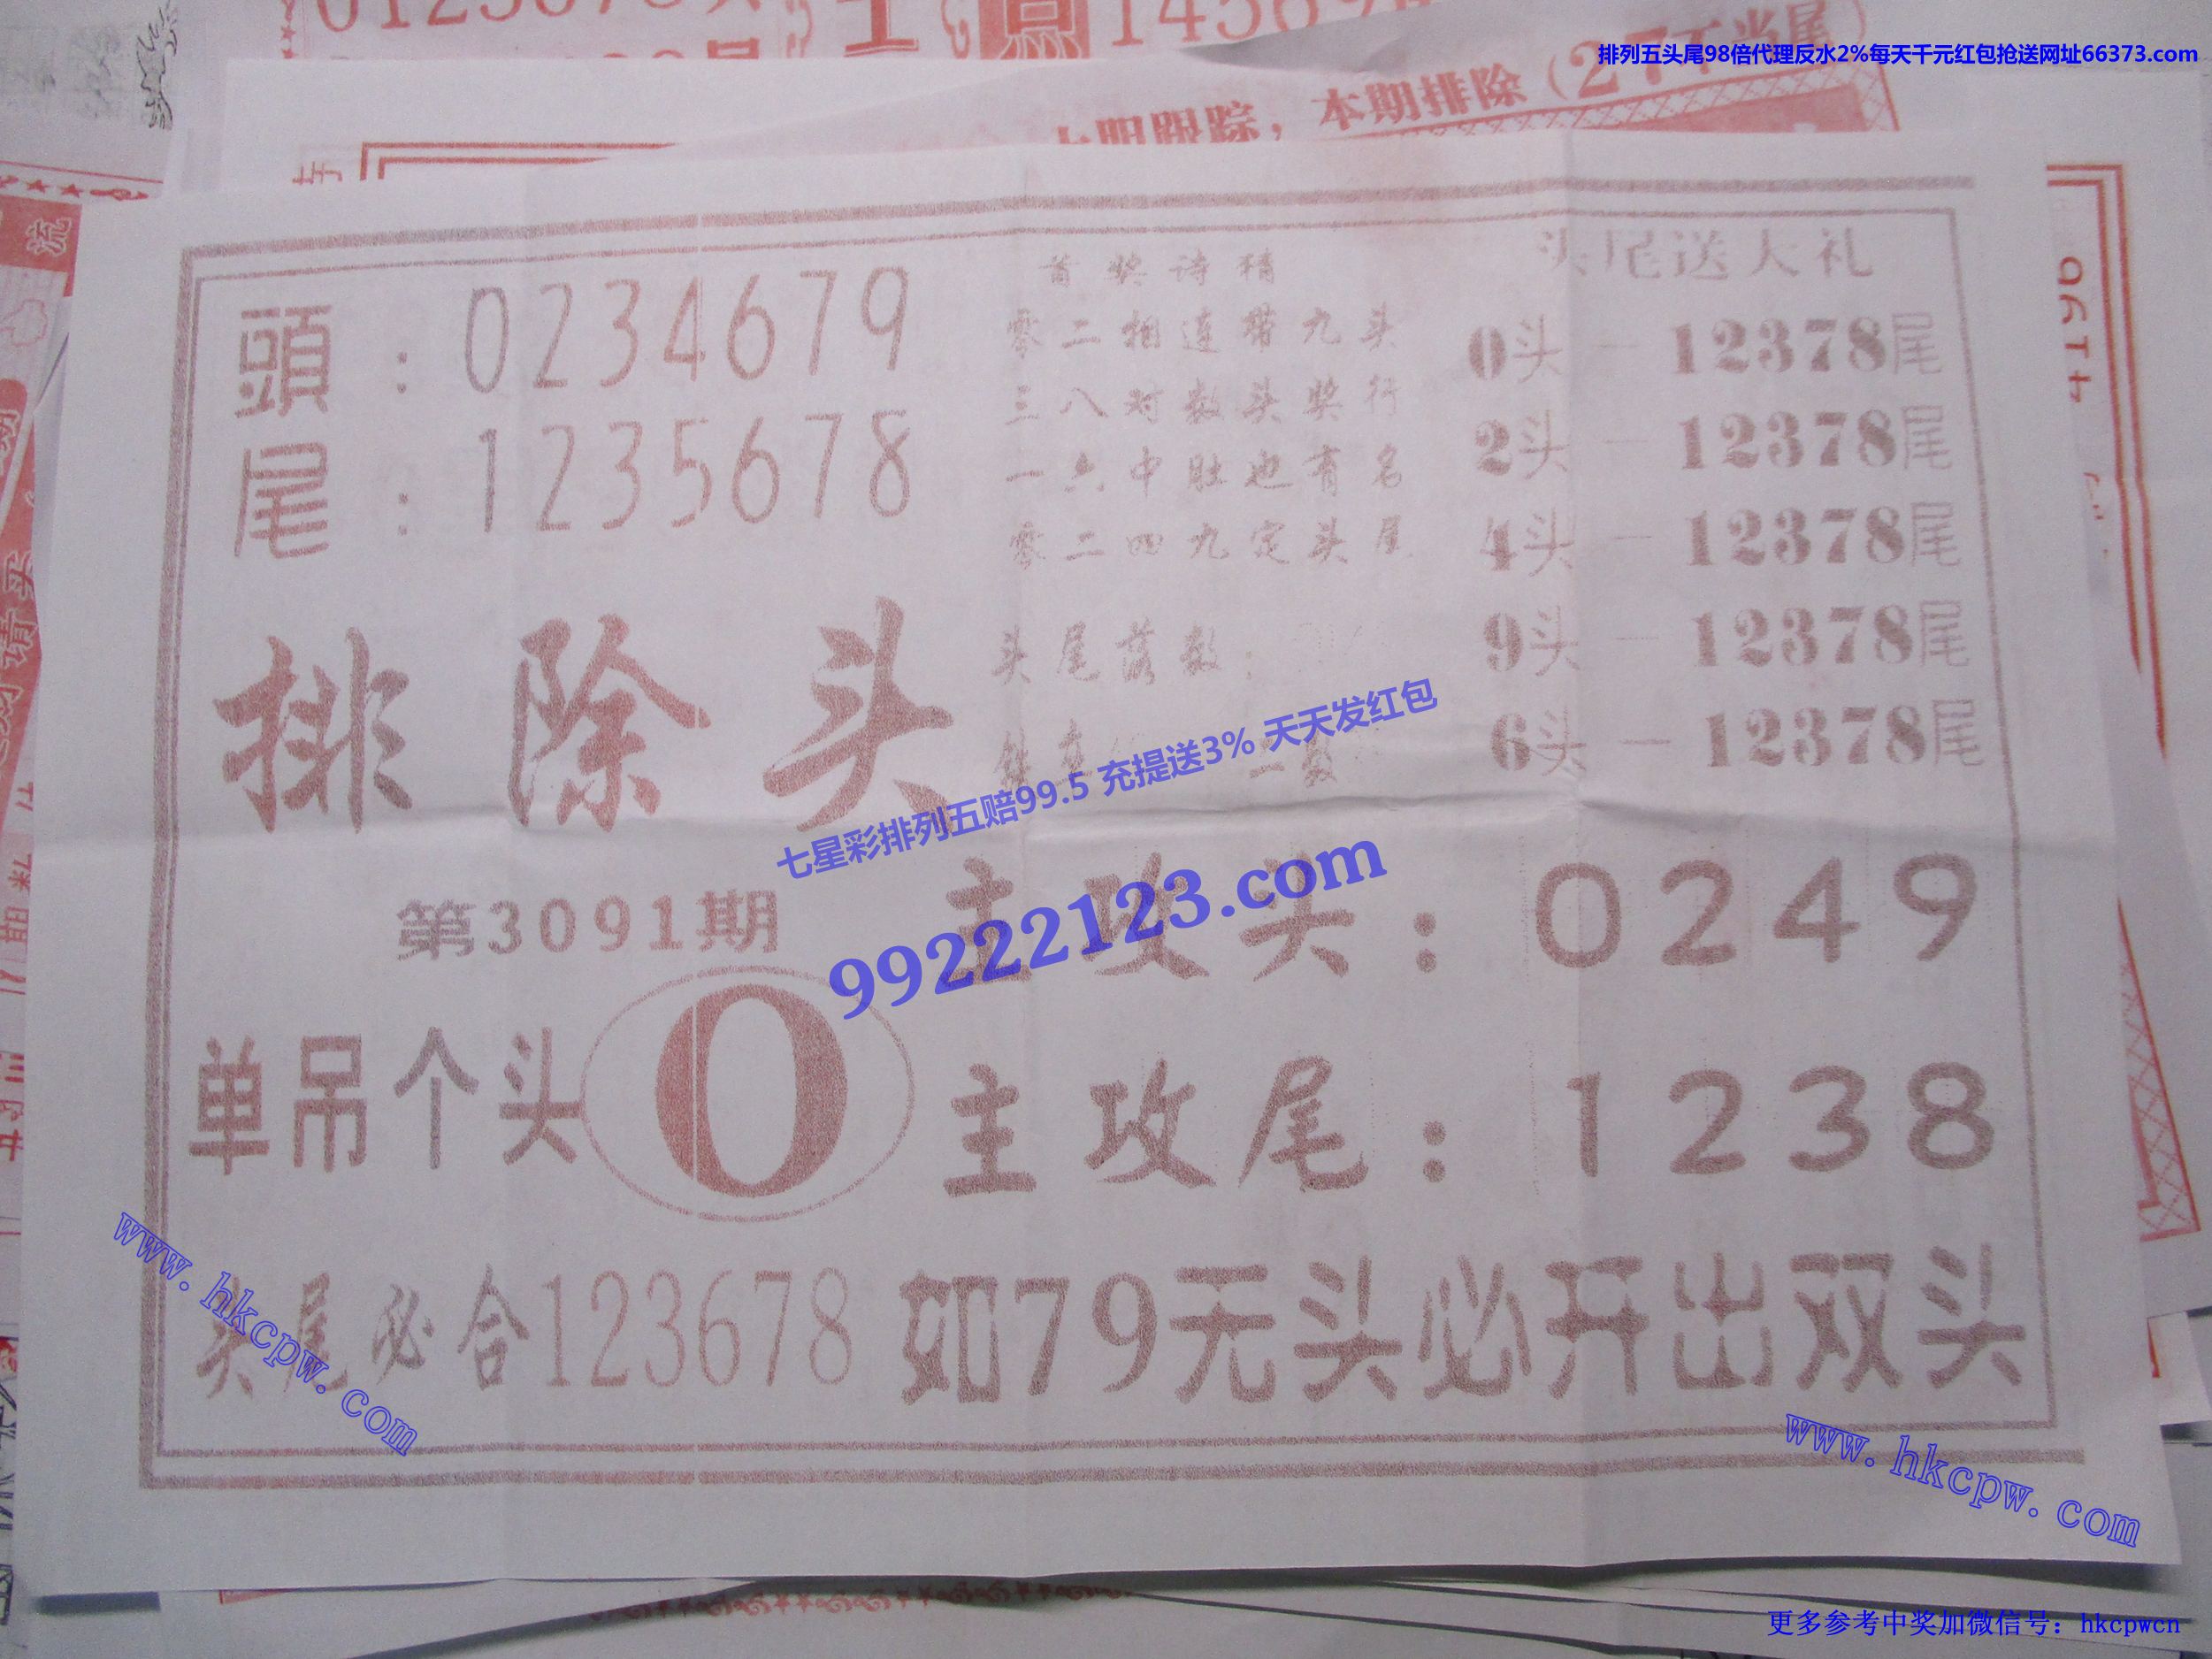 排列五头尾98倍代理反水2%每天千元红包抢送网址66373.com
本期排除(27
頭:0234679
尾:1235678
首奖诗精
零二相连带九头
三八对数头奖行
一六中肚也有名
零二四九定头尾
头尾落数:
二数
头尾送大礼
0头—12378尾
2头—12378尾
4头—12378尾
9头—12378尾
6头—12378尾
排除头
七星彩排列五赔99.5 充提送3% 天天发红包
99222123.com
第3091期
主攻头:0249
单吊个头 0
主攻尾:1238
头尾必合123678
如79无头必开出双头
www.hkcpw.com
www.hkcpw.com
更多参考中奖加微信号:hkcpwcn